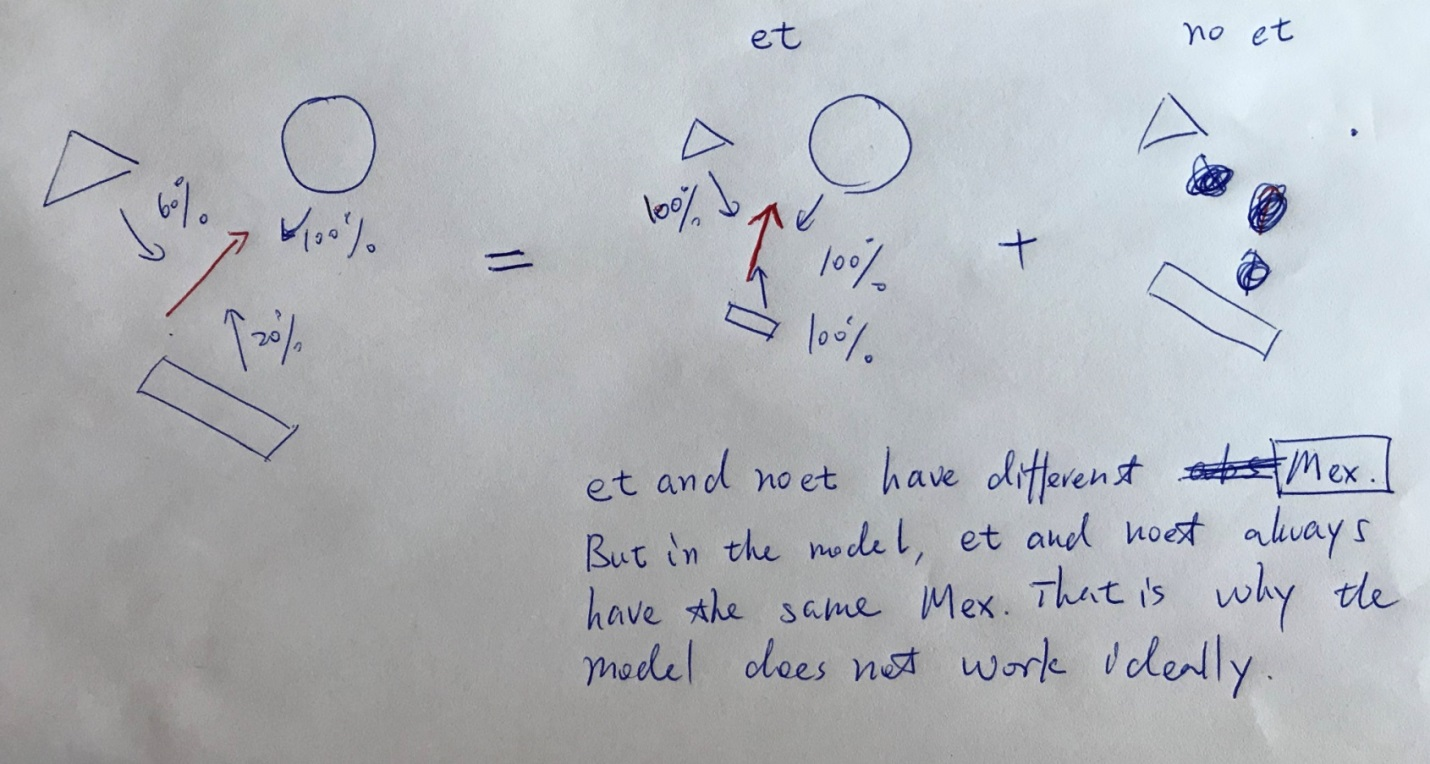 et
no et
60%
100%
20%
=
100%
100%
100%
+
et and no et have different Mex.
But in the model, et and noet always
have the same Mex. That is why the
model does not work ideally.